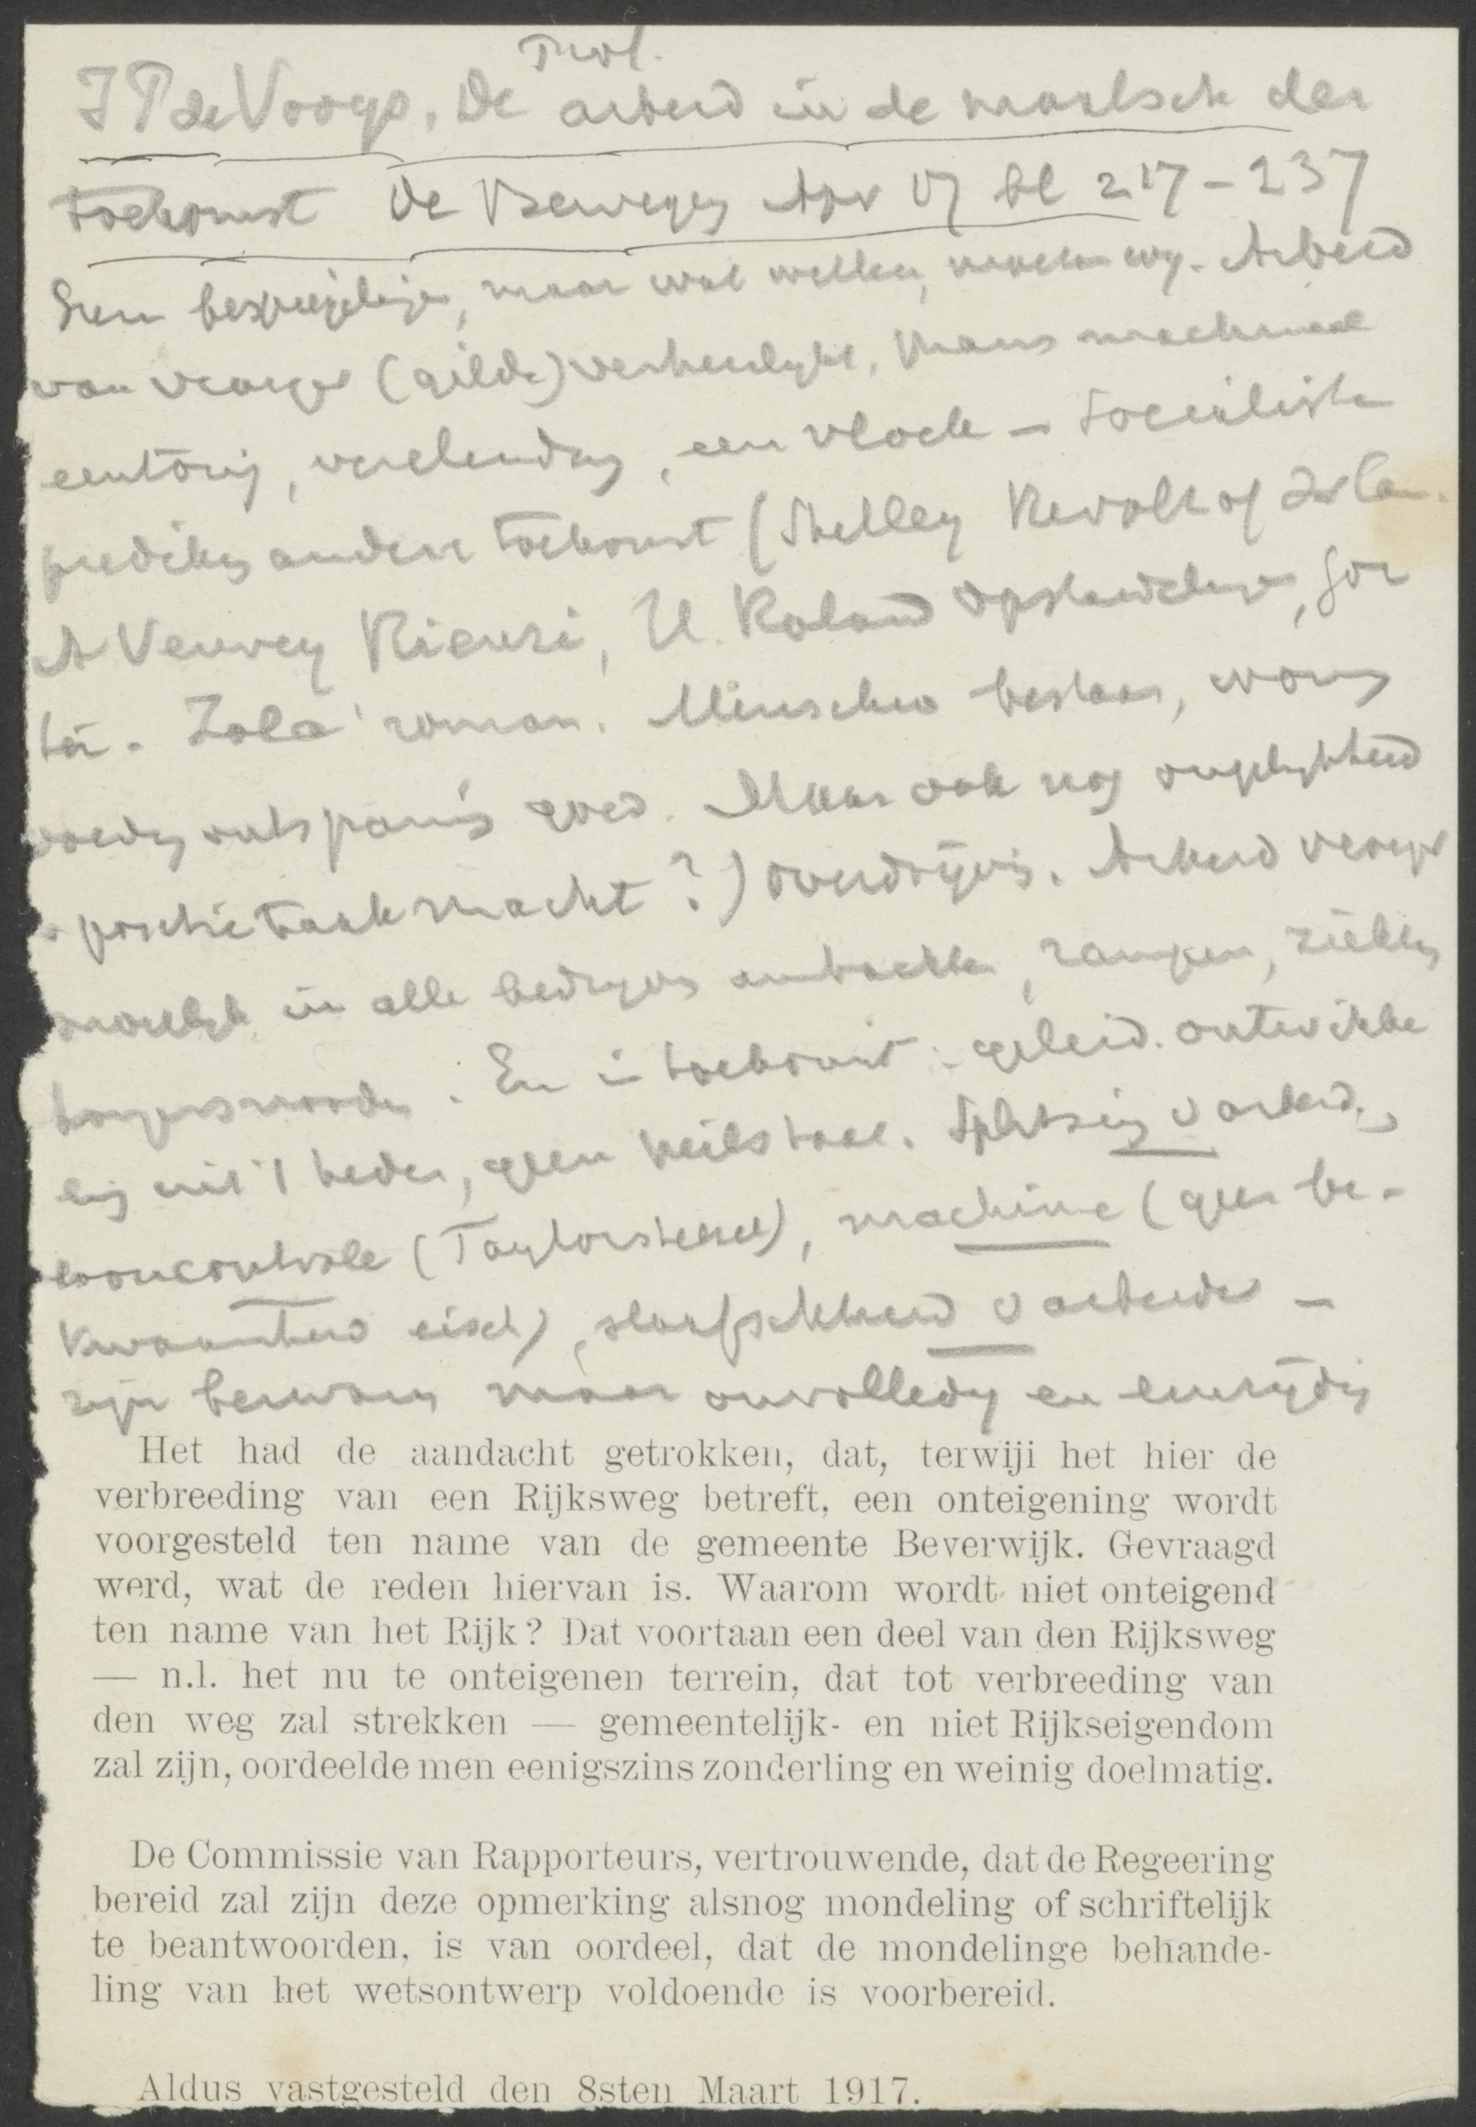 Prof.
I P de Vooys, De arbeid in de maatsch der
toekomst De Beweging Apr 17 bl 217-237
Geen bespiegeling, maar wat willen, moeten wy. Arbeid
van vroeger (gilde) verheerlijkt, thans machinaal
eentonig, verelending, een vloek – Socialisten
prediken andere toekomst (Shelley Revolt of Islam.
A Verwey Rienzi, H. Roland Opstandelingen, Gor
ter. Zola' roman. Menschen bestaan, woning
voeding ontspanning goed. Maar ook nog ongelijkheid
positie taak macht?) overdrijving. Arbeid vroeger
moeilijk in alle bedrijven ambachten, rampen, ziekten
hongersnooden. En in toekomst: geleid. ontwikke
ling uit 't heden, geen heilstaat. Splitsing v arbeid,
looncontrole (Taylorstelsel), machine (geen be-
kwaamheid eischt), slaafschheid v arbeider –
zijn bezwaren maar onvolledig en eenzijdig
Het had de aandacht getrokken, dat, terwiji het hier de
verbreeding van een Rijksweg betreft, een onteigening wordt
voorgesteld ten name van de gemeente Beverwijk. Gevraagd
werd, wat de reden hiervan is. Waarom wordt niet onteigend
ten name van het Rijk? Dat voortaan een deel van den Rijksweg
— n.l. het nu te onteigenen terrein, dat tot verbreeding van
den weg zal strekken — gemeentelijk- en niet Rijkseigendom
zal zijn, oordeelde men eenigszins zonderling en weinig doelmatig.
De Commissie van Rapporteurs, vertrouwende, dat de Regeering
bereid zal zijn deze opmerking alsnog mondeling of schriftelijk
te beantwoorden, is van oordeel, dat de mondelinge behande-
ling van het wetsontwerp voldoende is voorbereid.
Aldus vastgesteld den 8sten Maart 1917.